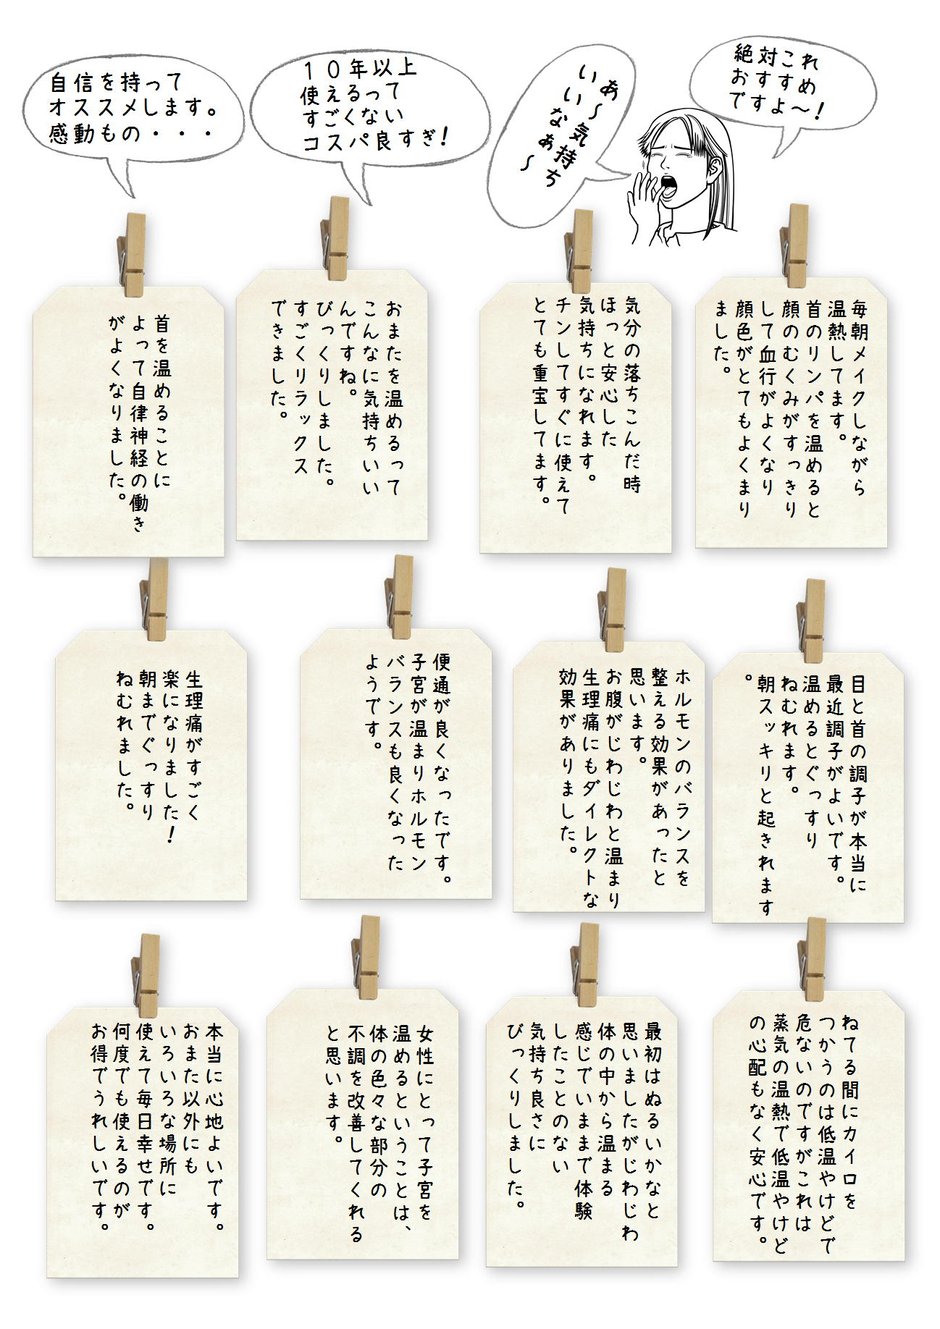 自信を持って
オススメします。
感動もの・・・
１０年以上
使えるって
すごくない
コスパ良すぎ！
あ〜気持ち
いいなぁ〜
絶対これ
おすすめ
ですよ〜！
首を温めることに
よって自律神経の働き
がよくなりました。
おまたを温めるって
こんなに気持ちいい
んですね。
びっくりしました。
すごくリラックス
できました。
気分の落ちこんだ時
ほっと安心した
気持ちになれます。
チンしてすぐに使えて
とても重宝してます。
毎朝メイクしながら
温熱してます。
首のリンパを温めると
顔のむくみがすっきり
して血行がよくなり
顔色がとてもよくまり
ました。
生理痛がすごく
楽になりました！
朝までぐっすり
ねむれました。
便通が良くなったです。
子宮が温まりホルモン
バランスも良くなった
ようです。
ホルモンのバランスを
整える効果があったと
思います。
お腹がじわじわと温まり
生理痛にもダイレクトな
効果がありました。
目と首の調子が本当に
最近調子がよいです。
温めるとぐっすり
ねむれます。
朝スッキリと起きれます
。
本当に心地よいです。
おまた以外にも
いろいろな場所に
使えて毎日幸せです。
何度でも使えるのが
お得でうれしいです。
女性にとって子宮を
温めるということは、
体の色々な部分の
不調を改善してくれる
と思います。
最初はぬるいかなと
思いましたがじわじわ
体の中から温まる
感じでいままで体験
したことのない
気持ち良さに
びっくりしました。
ねてる間にカイロを
つかうのは低温やけどで
危ないのですがこれは
蒸気の温熱で低温やけど
の心配もなく安心です。